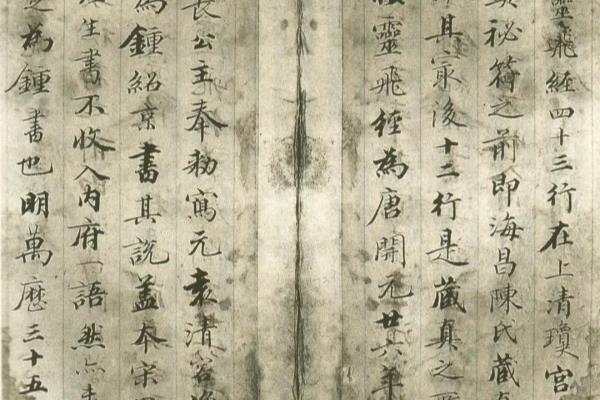 靈飛經四十三行在上清瓊宮
祕符之前即海昌陳氏藏真
其最後十二行是藏真之所
靈飛經為唐開元廿六年
長公主奉勑寫元袁清容
為鍾紹京書其說蓋本宋
生書不收入內府一語然亦未
為鍾書也明萬曆三十五